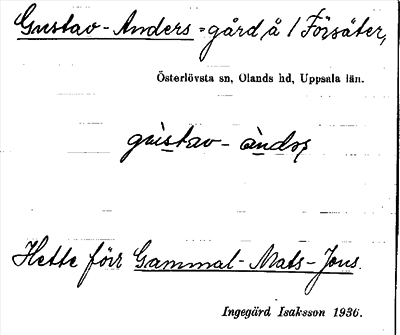 Gustav-Anders=gård, å 1 Försäter,
Österlövsta sn, Olands hd, Uppsala län.
gùstav-ànd​ǝṣ
Hette förr Gammal-Mats-Jons.
Ingegärd Isaksson 1936.